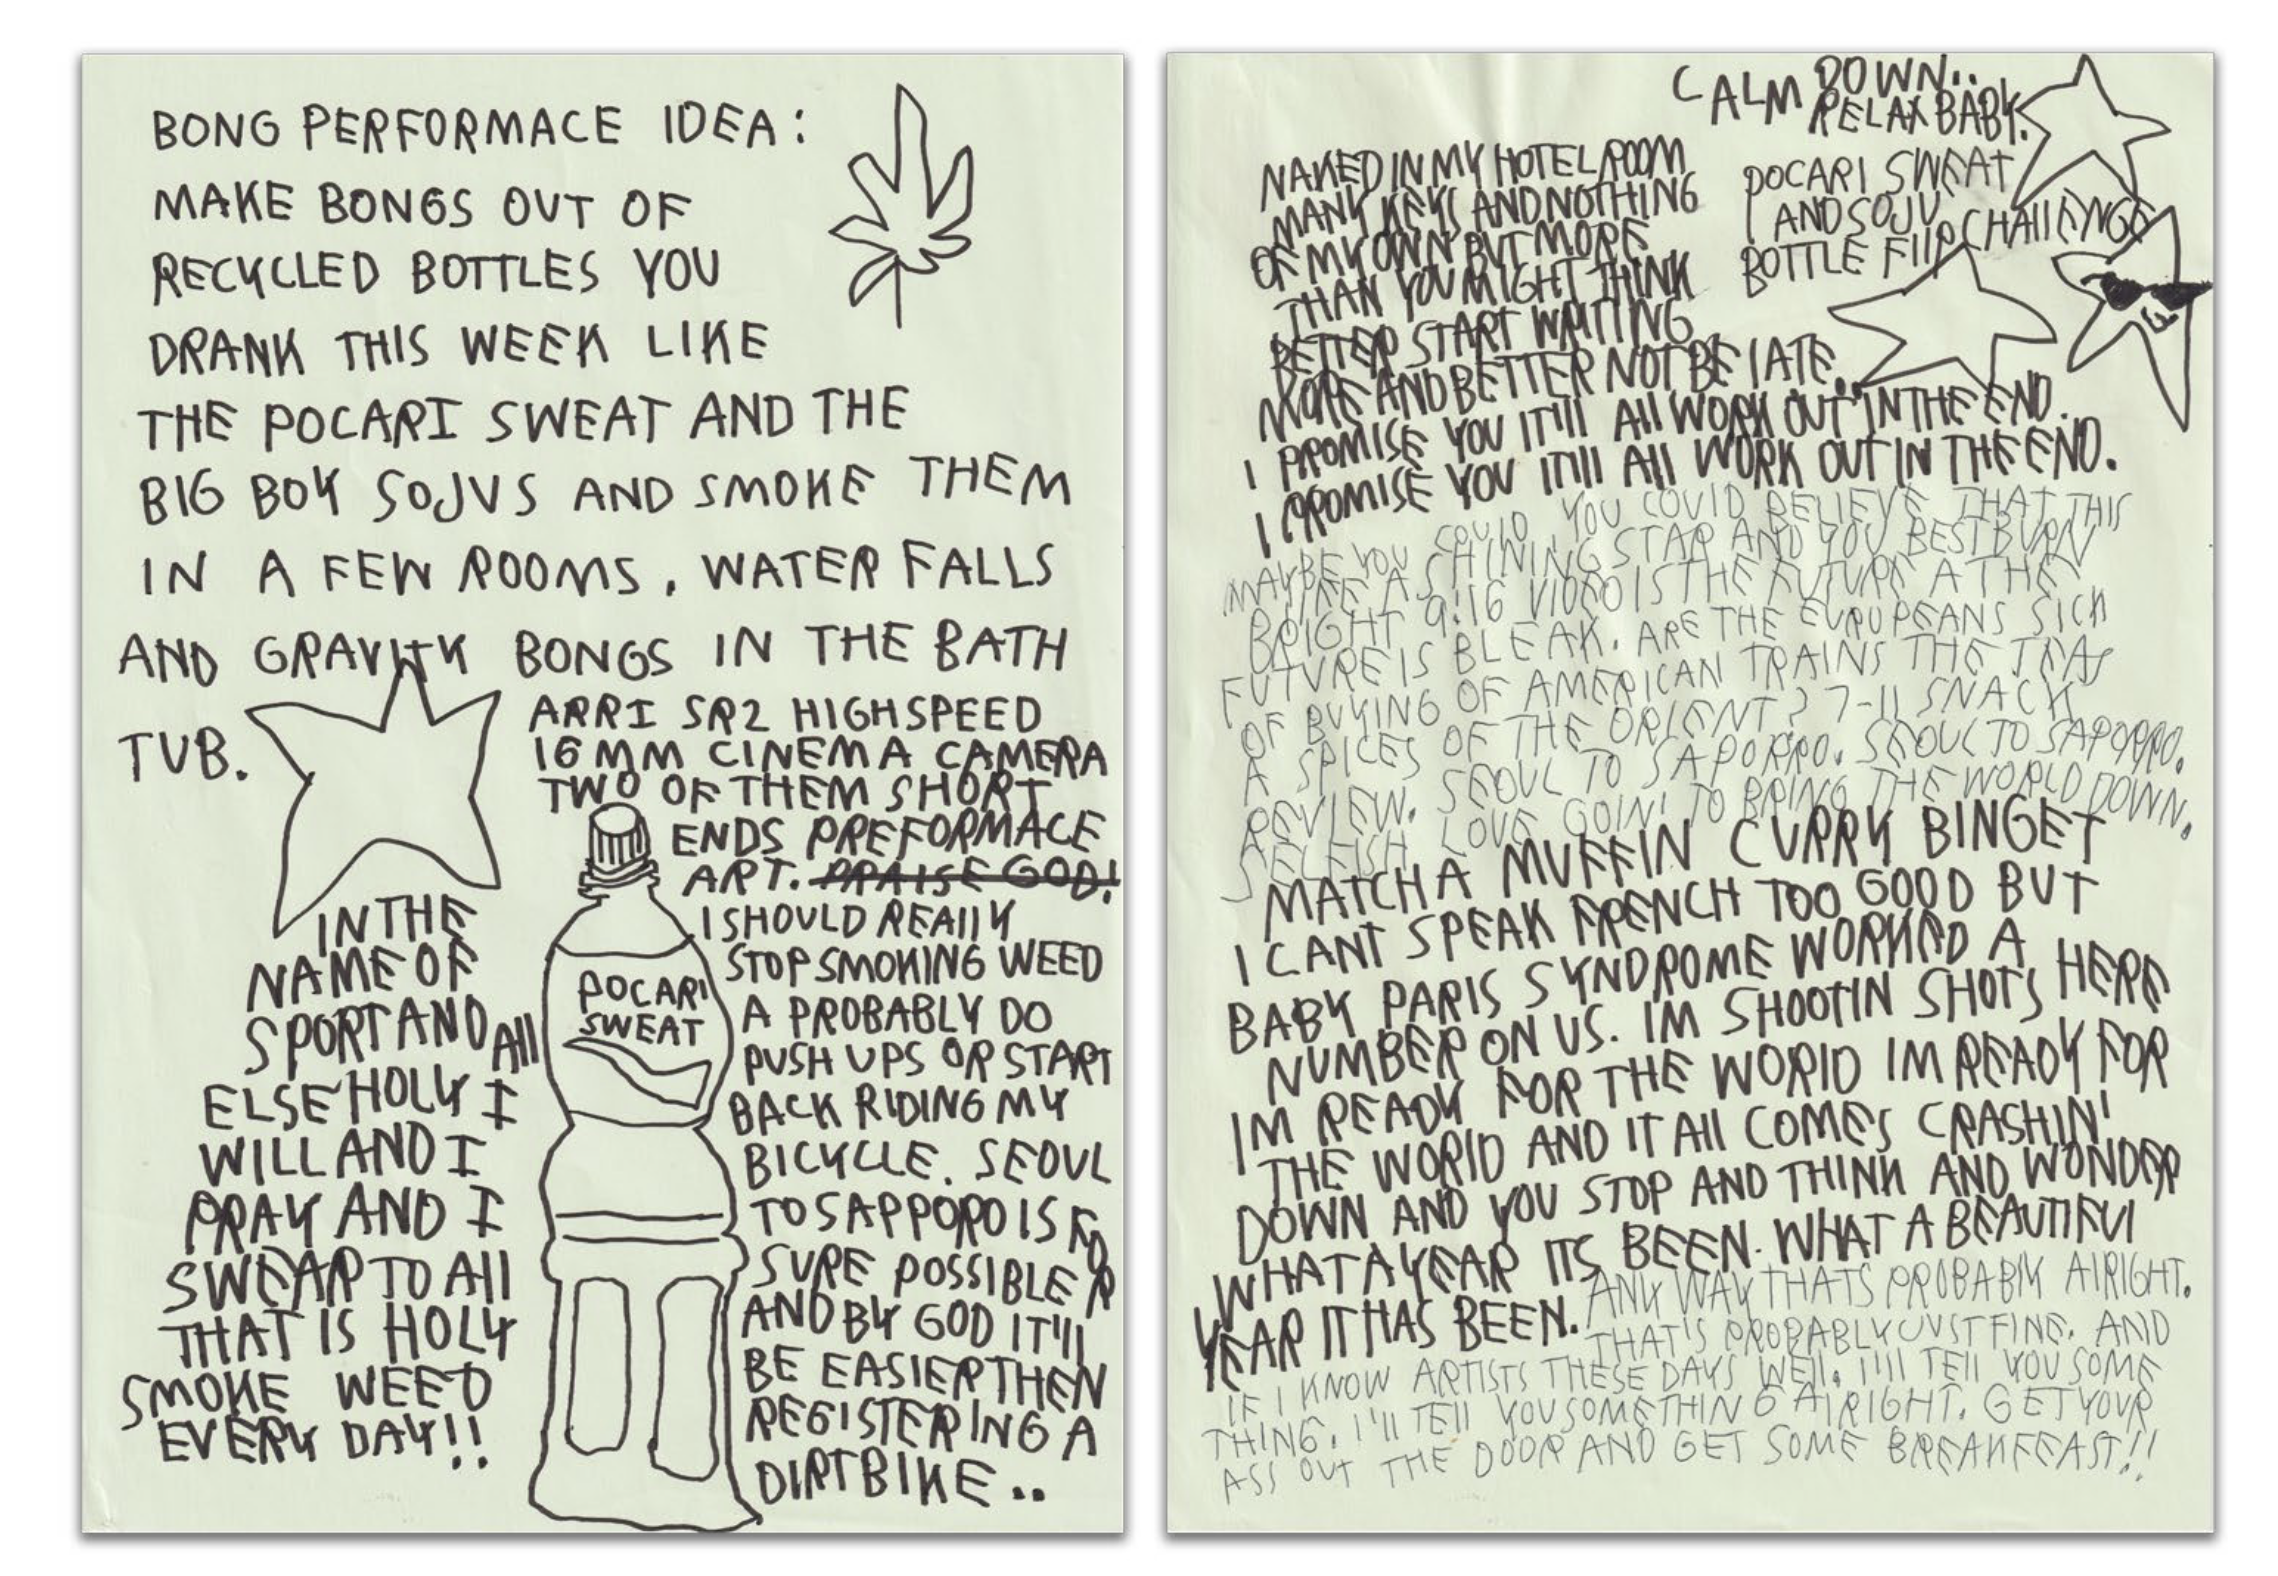 BONG PERFORMACE IDEA:
MAKE BONGS OUT OF
RECYCLED BOTTLES YOU
DRANK THIS WEEK LIKE
THE POCARI SWEAT AND THE
BIG BOY SOJUS AND SMOKE THEM
IN A FEW ROOMS, WATER FALLS
AND GRAVITY BONGS IN THE BATH
TUB.
ARRI SR2 HIGHSPEED
16MM CINEMA CAMERA
TWO OF THEM SHORT
ENDS PREFORMACE
ART. PRAISE GOD!
I SHOULD REALLY
STOP SMOKING WEED
A PROBABLY DO
PUSH UPS OR START
BACK RIDING MY
BICYCLE. SEOUL
TO SAPPORO IS FOR
SURE POSSIBLE
AND BY GOD IT'LL
BE EASIER THEN
REGISTERING A
DIRTBIKE..
IN THE
NAME OF
SPORT AND ALL
ELSE HOLY I
WILL AND I
PRAY AND I
SWEAR TO ALL
THAT IS HOLY
SMOKE WEED
EVERY DAY!!
POCARI
SWEAT
CALM DOWN..
RELAX BABY.
POCARI SWEAT
AND SOJU
BOTTLE FLIP CHALLENGE
NAKED IN MY HOTEL ROOM
MANY KEYS AND NOTHING
OF MY OWN BUT MORE
THAN YOU MIGHT THINK
BETTER START WRITING
MORE AND BETTER NOT BE LATE..
I PROMISE YOU IT'LL ALL WORK OUT IN THE END.
I PROMISE YOU IT'LL ALL WORK OUT IN THE END.
MAYBE YOU COULD YOU COULD BELIEVE THAT THIS
LIKE A SHINING STAR AND YOU BEST BURN
BRIGHT 9:16 VIDEO IS THE FUTURE A THE
FUTURE IS BLEAK. ARE THE EUROPEANS SICK
OF BUYING OF AMERICAN TRAINS THE TEAS
A SPICES OF THE ORIENT? 7-11 SNACK
REVIEW. SEOUL TO SAPORRO. SEOUL TO SAPORRO.
SELFISH LOVE GOIN' TO BRING THE WORLD DOWN.
MATCHA MUFFIN CURRY BINGET
I CANT SPEAK FRENCH TOO GOOD BUT
BABY PARIS SYNDROME WORKED A
NUMBER ON US. IM SHOOTIN SHOTS HERE
IM READY FOR THE WORLD IM READY FOR
THE WORLD AND IT ALL COMES CRASHIN'
DOWN AND YOU STOP AND THINK AND WONDER
WHAT A YEAR ITS BEEN. WHAT A BEAUTIFUL
YEAR IT HAS BEEN. ANY WAY THATS PROBABLY ALRIGHT.
THAT'S PROBABLY JUST FINE. AND
IF I KNOW ARTISTS THESE DAYS WELL. I'LL TELL YOU SOME
THING. I'LL TELL YOU SOMETHING ALRIGHT. GET YOUR
ASS OUT THE DOOR AND GET SOME BREAKFEAST!!